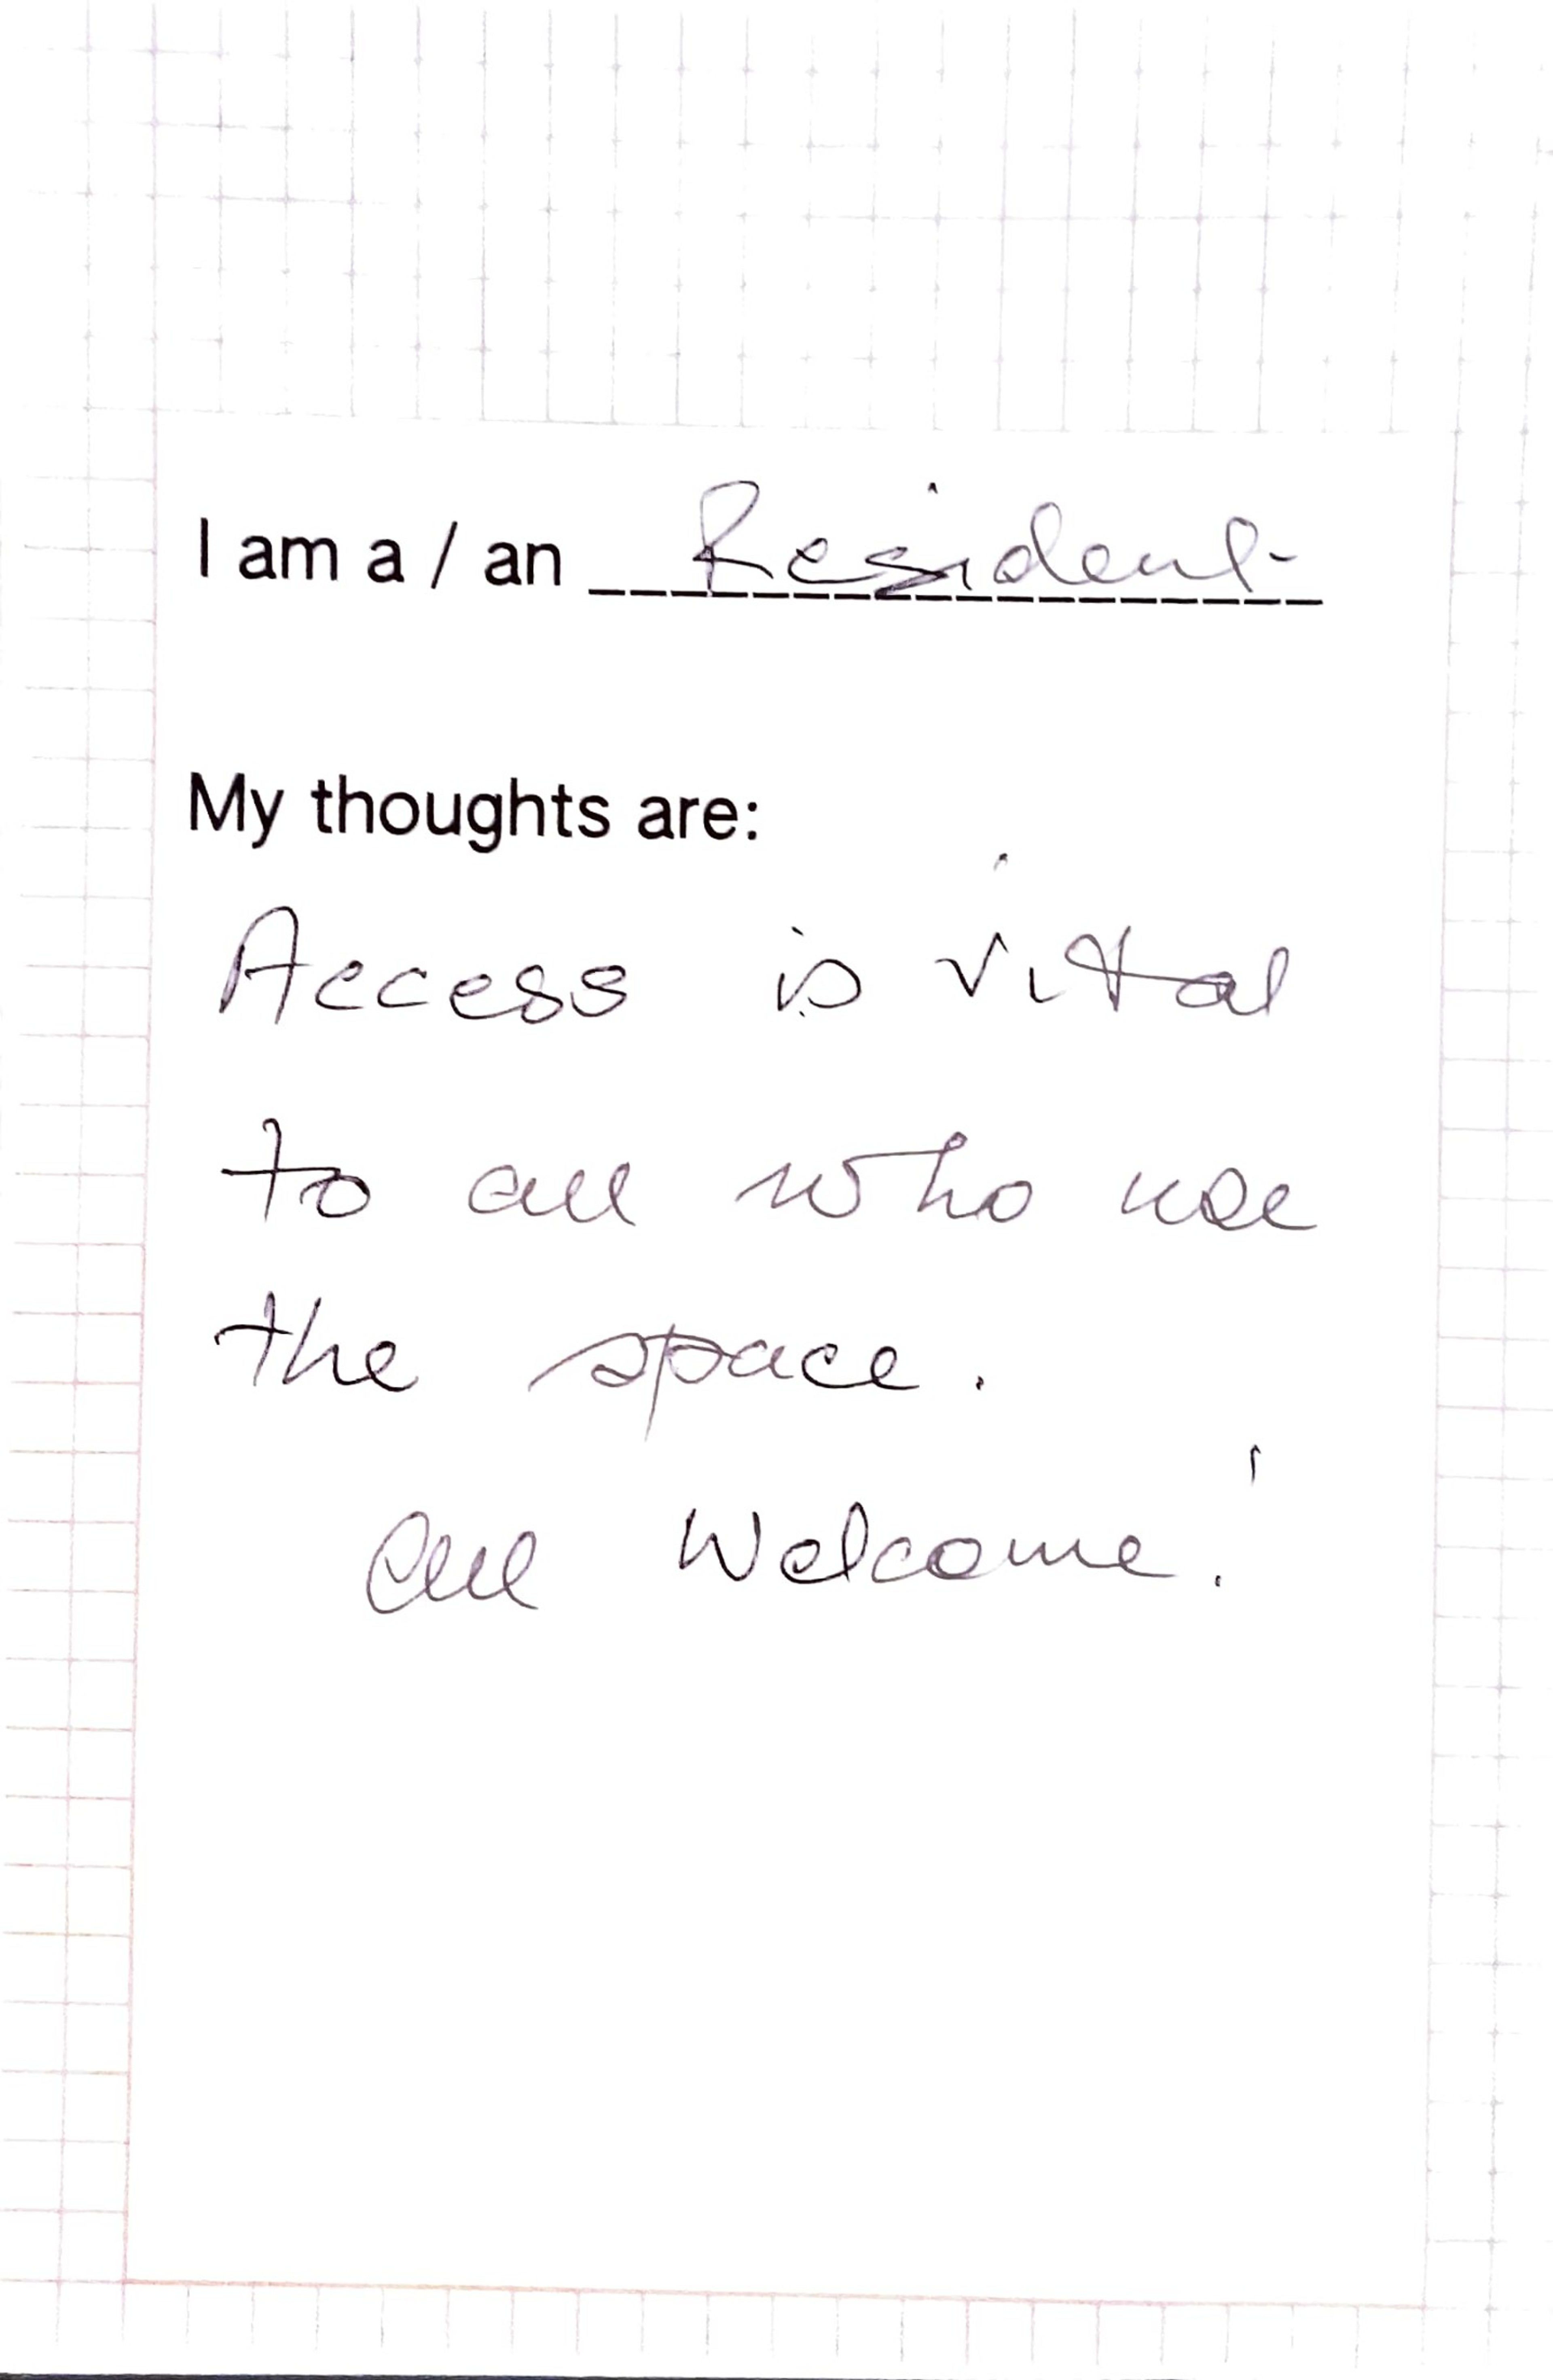 I am a / an Resident
My thoughts are:
Access is vital
to all who use
the space.
All Welcome!